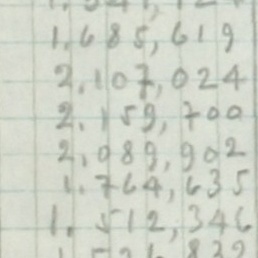 1.685,619
2.107,024
2.159,700
2.089,902
1.764,635
1.512,346